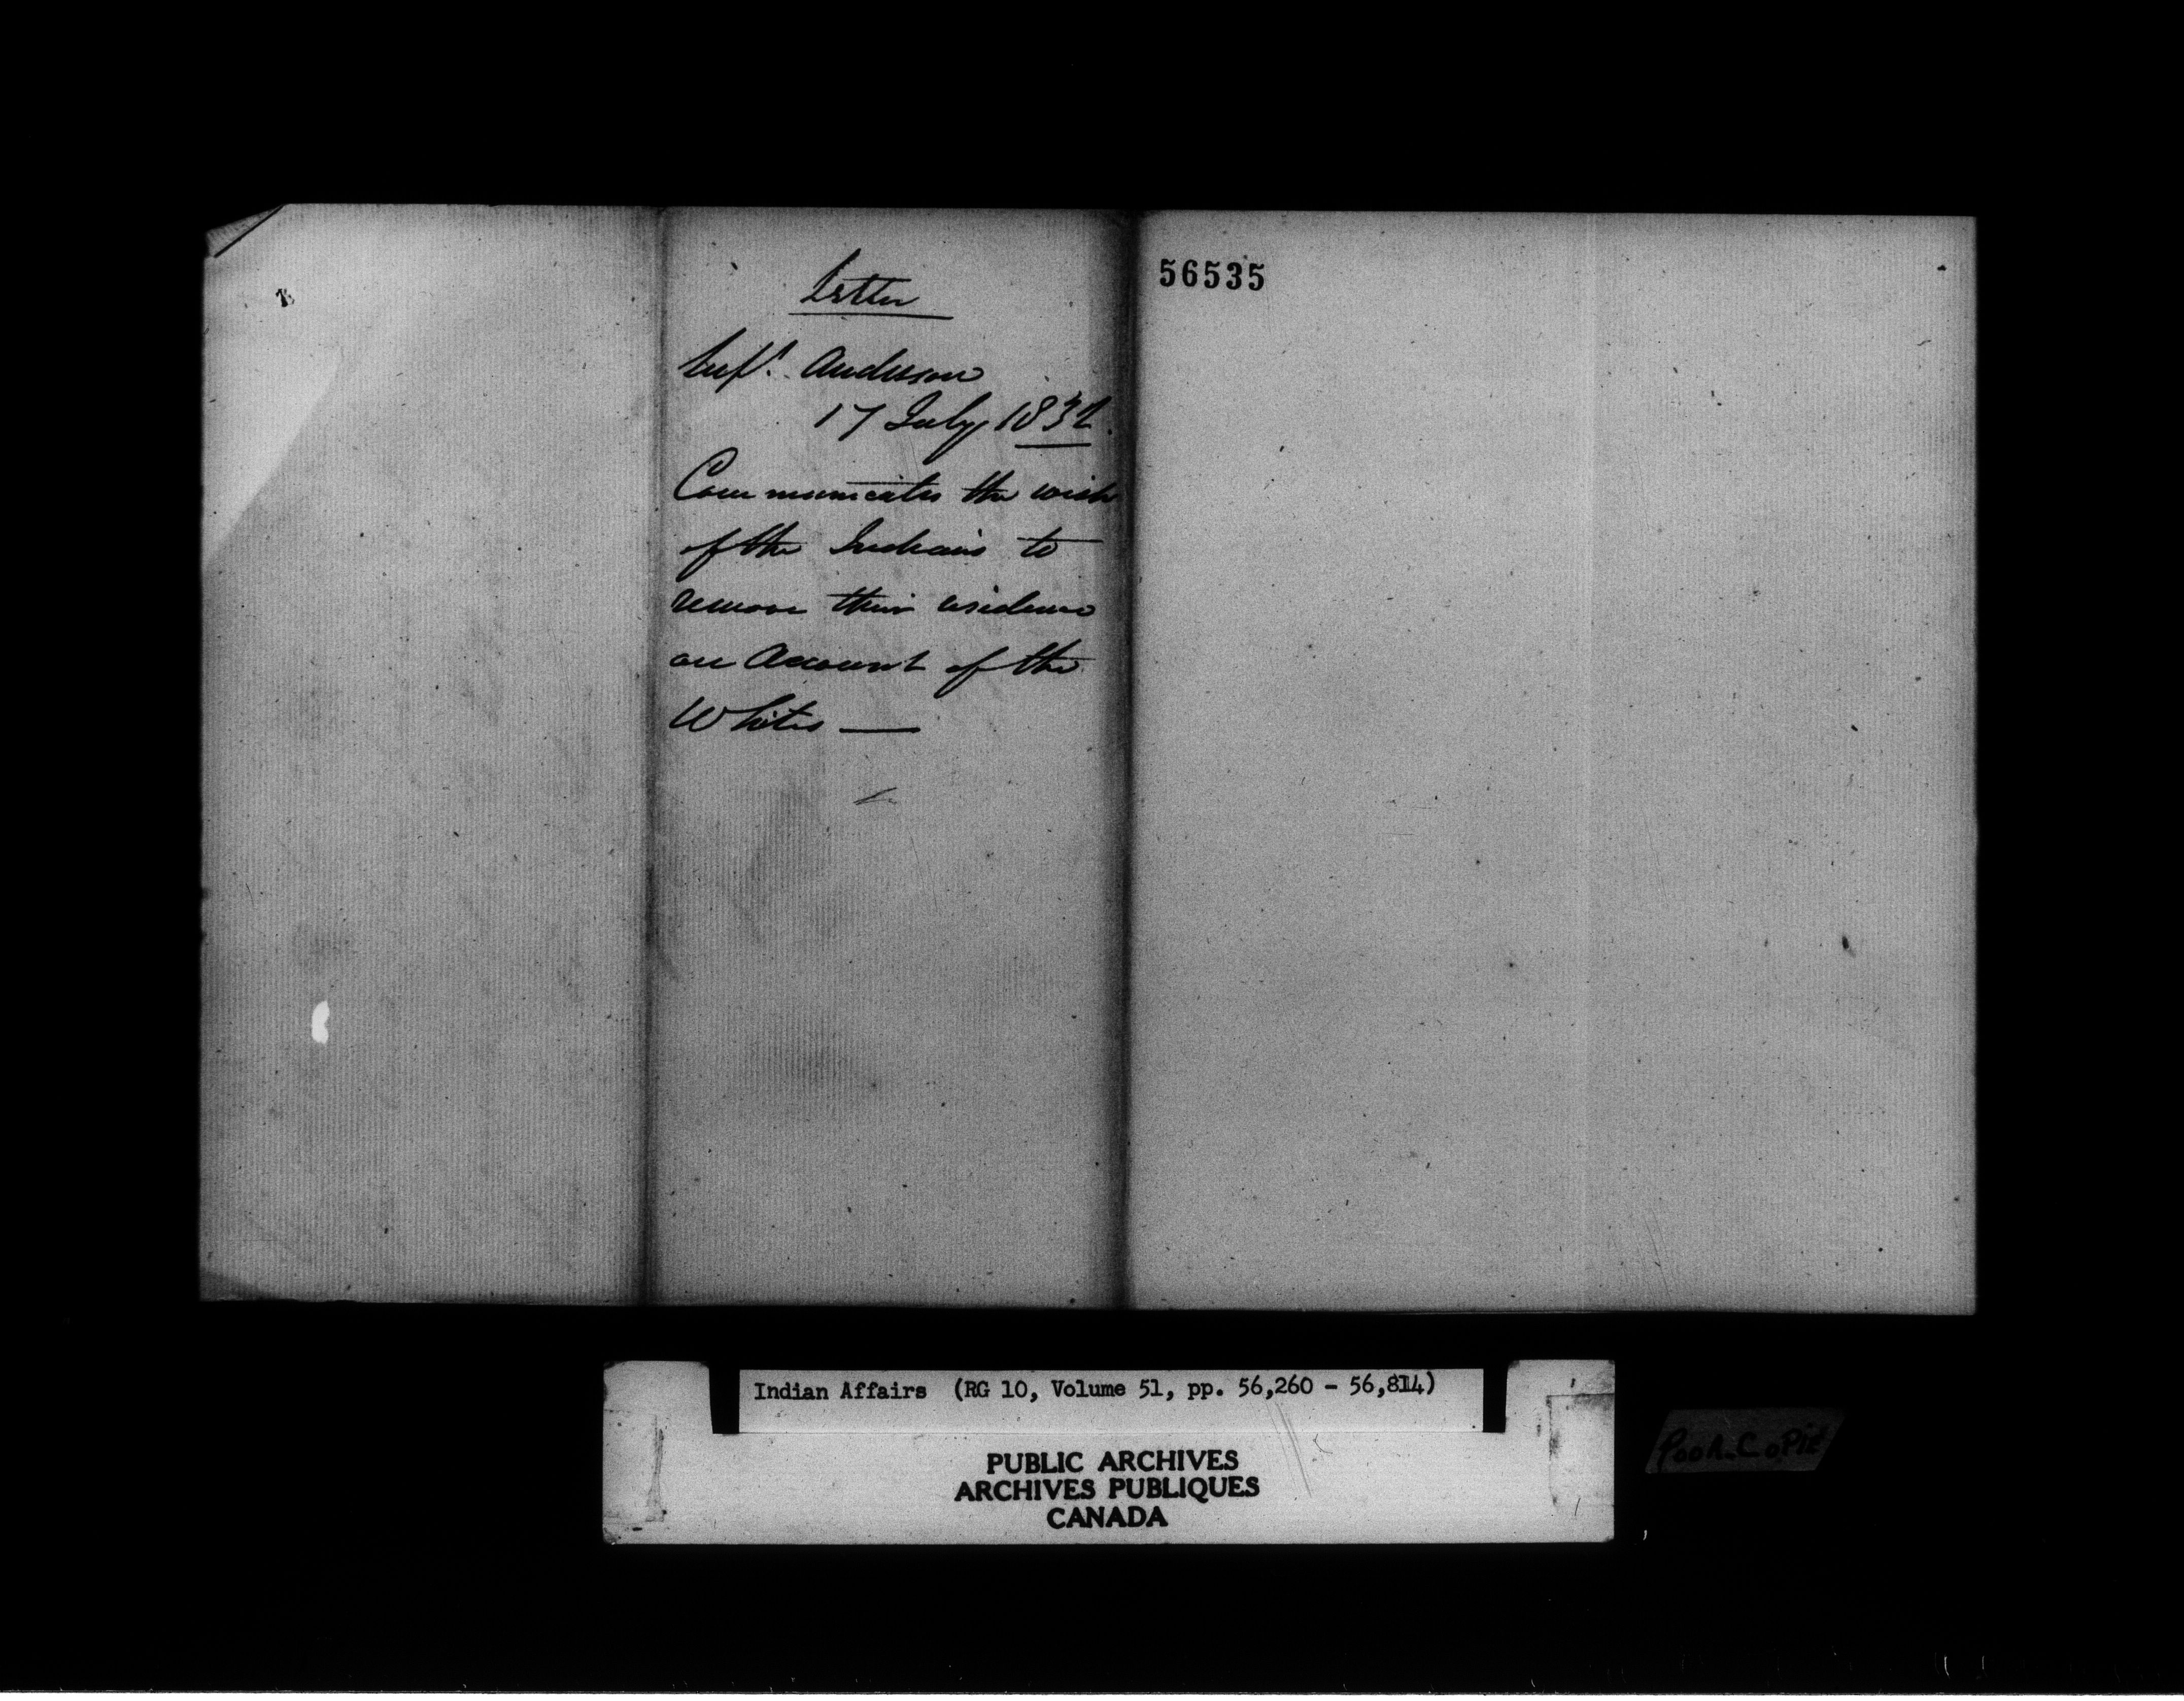 Letter
Supt. Anderson
17 July 1832.
Communicates the wish
of the Indians to
remove their residence
on Account of the
Whites —
56535
Indian Affairs (RG 10, Volume 51, pp. 56,260 - 56,814)
PUBLIC ARCHIVES
ARCHIVES PUBLIQUES
CANADA
POOR COPIE